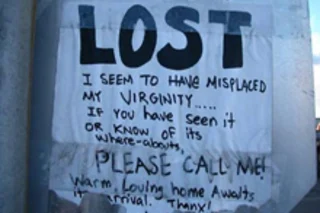 LOST
I SEEM TO HAVE MISPLACED
MY VIRGINITY.....
IF YOU HAVE SEEN it
OR KNOW OF its
where-abouts,
PLEASE CALL ME!
Warm, Loving home Awaits
its arrival. Thanx!